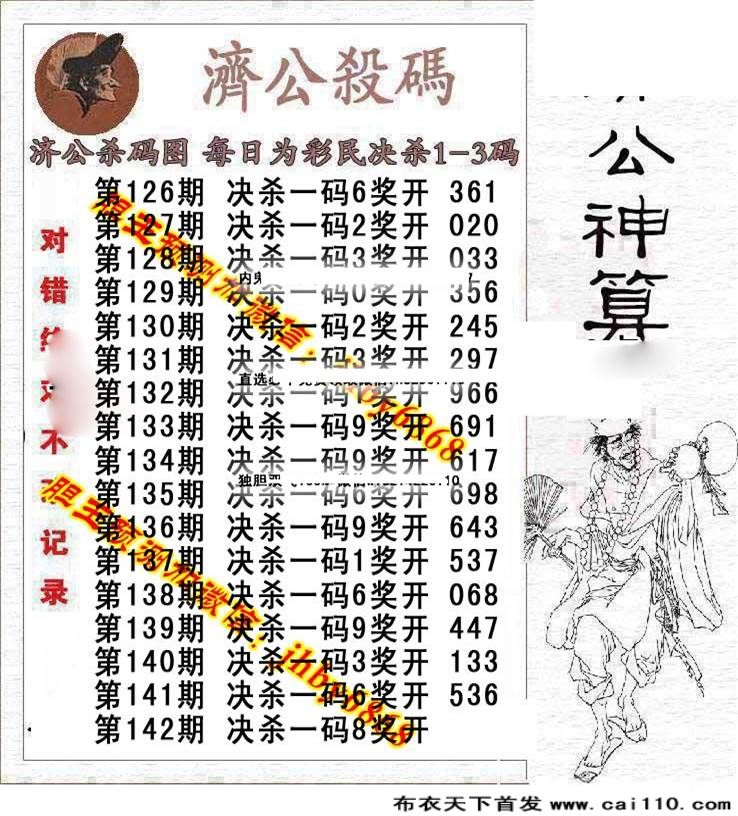 濟公殺碼
济公杀码图 每日为彩民决杀1-3码
第126期 决杀一码6奖开 361
第127期 决杀一码2奖开 020
第128期 决杀一码3奖开 033
第129期 决杀一码0奖开 356
第130期 决杀一码2奖开 245
第131期 决杀一码3奖开 297
第132期 决杀一码1奖开 966
第133期 决杀一码9奖开 691
第134期 决杀一码9奖开 617
第135期 决杀一码6奖开 698
第136期 决杀一码9奖开 643
第137期 决杀一码1奖开 537
第138期 决杀一码6奖开 068
第139期 决杀一码9奖开 447
第140期 决杀一码3奖开 133
第141期 决杀一码6奖开 536
第142期 决杀一码8奖开
对错
不
记录
胆王预测加微信：
胆王预测加微信：jhby6868
内
直选
独胆
公神算
布衣天下首发 www.cai110.com